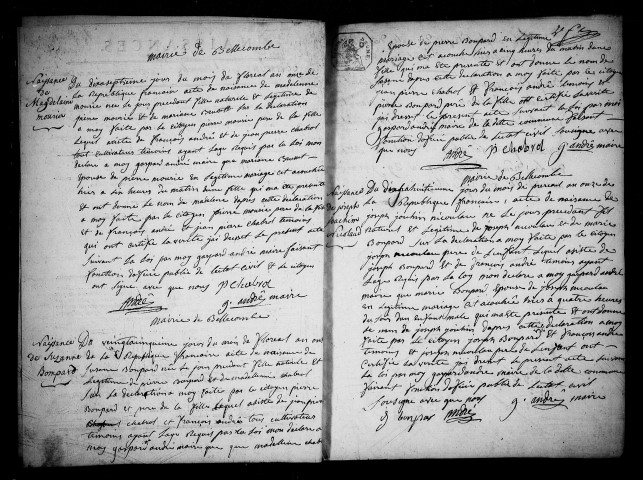 mairie de Bellecombe
Naissance
De
Magdelaine
mounier
Du dixseptieme jour du moy de floreal an onze de
La republique francaise acte de naissance de madelene
mounier née le jour precedant fille naturelle et Legitime de
pierre mounier et de mariane Bonnet sur La declaration
a moy faite par le citoyen pierre mounier pere de la fille
Lequel assisté de françois andré et de jean pierre chabrol
tout cultivateurs temoins ayant Lage Requis par La Loi mon
declaré a moy gaspard andré maire que mariane Bonnet
Epouse de pierre mounier en Legitime mariage est acouchée
hier a six heures du matin dune fille qui ma été presenté
et ont donné Le nom de madelene dapres cette declaration
a moy faite par le citoyen pierre mounier pere de La fille
et de françois andré et jean pierre chabrol temoins
qui ont certifié la verité jai dressé Le present acte
suivant La Loi par moy gaspard andré maire faisant
fonction dofficier public de letat civil et les citoyen
ont signé avec que nous P chabrol
andré g. andré maire
mairie de Bellecombe
Naissance
De Suzanne
Bompard
Du vingtcinquieme jour du moi de floreal an onze
de La Republique francaise acte de naissance de
Suzanne Bompard née le jour precedent fille naturelle et
Legitime de pierre Bompard et de madelaine chabrol
Sur La declaration a moy faite par le citoyen pierre
Bompard et pere de la fille Lequel assisté de jean pierre
chabrol et françois andré tous cultivateurs
temoins ayant Lage Requis par La Loi mon declaré a
moy gaspard andré maire que madelaine chabrol
Epouse de pierre Bompard en Legitime
mariage est acouchée hier a cinq heures du matin dune
fille qui ma été presenté et ont donné le nom de
Suzanne dapres cette declaration a moy faite par les citoyen
jean pierre chabrol et françois andré temoins et
pierre Bompard pere de la fille ont certifié la verité
jai dressé le present acte suivant La Loi par moi
gaspard andré maire de la ditte commune faisant
fonction dofficier public de Letat civil soussigné avec
que nous
andré P chabrol g. andré maire
mairie de Bellecombe
Naissance
De joseph
joachim
Nicolaud
Du dixhuitieme jour du mois de prereal an onze de
La Republique francaise acte de naissance de
joseph
naturel et Legitime de joseph nicoulau et de marie
Bonpard sur La declaration a moy faite par le citoyen
joseph nicoulau pere de Lenfant Lequel assisté de
joseph Bonpard et de françois andré temoins ayant
Lage Requis par La Loy mon declaré a moy gaspard andré
maire que marie Bonpard Epouse de joseph nicoulau
en Legitime mariage est acouchée hier a quatre heures
du soir dun enfant male qui ma été presenté et ont donné
le nom de joseph dapres cette declaration a moy
faite par le citoyen joseph Bonpard et françois andré
temoins et joseph nicoulau pere de Lenfant ont
Certifié La verité jai dressé Le present acte suivant
La loi par moy gaspard andre maire de la ditte commune
faisant fonction dofficier public de Letat civil
soussigné avec que nous
j bonpar andré g. andré maire